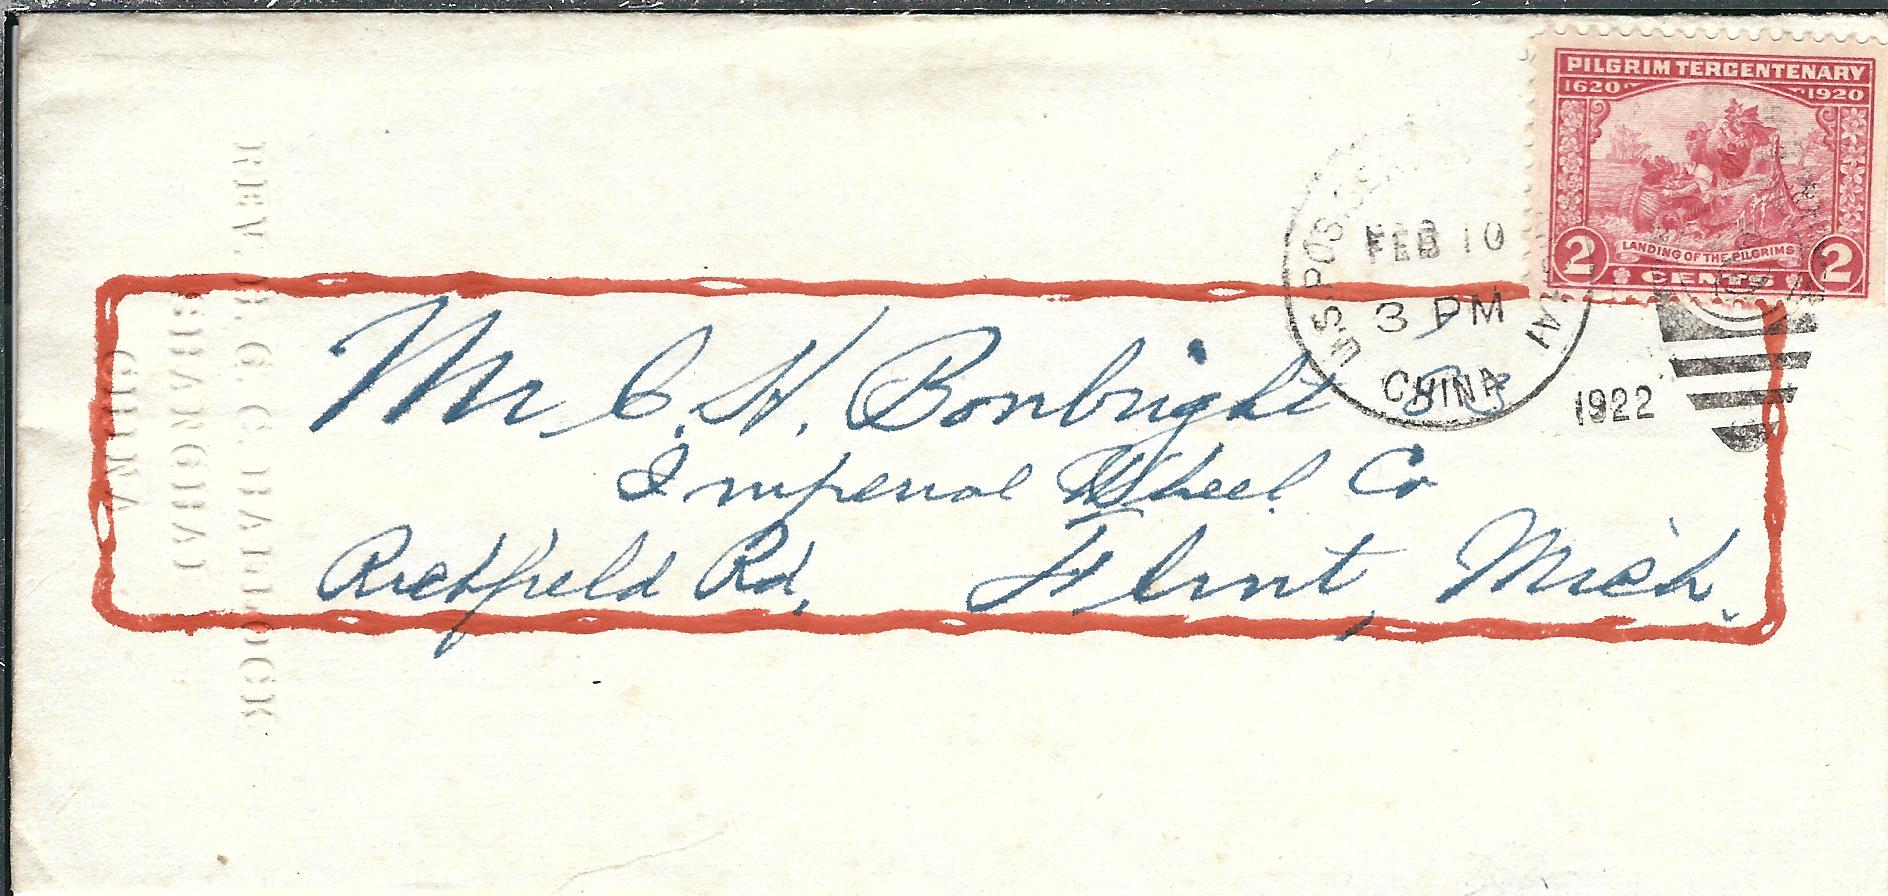 PILGRIM TERCENTENARY
1620 1920
LANDING OF THE PILGRIMS
2 CENTS 2
U.S. POS.
FEB 10
3 PM
CHINA
1922
Mr C. H. Bonbright
Imperial Wheel Co
Richfield Rd, Flint, Mich.
REV. DR. G. C. BALLOCK
SHANGHAI
CHINA